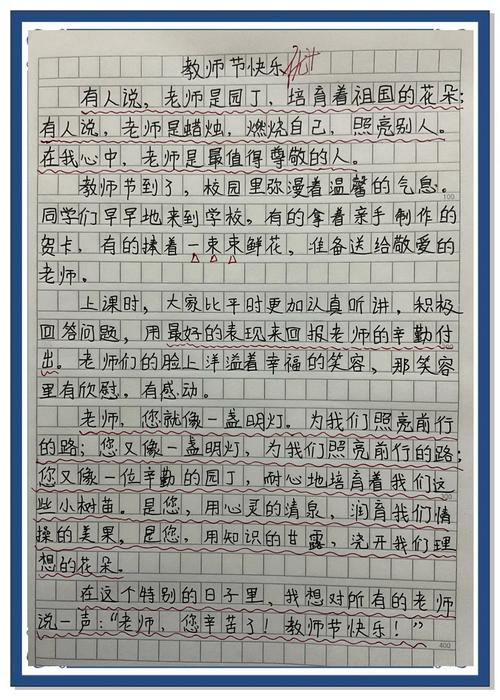 教师节快乐
有人说，老师是园丁，培育着祖国的花朵；
有人说，老师是蜡烛，燃烧自己，照亮别人。
在我心中，老师是最值得尊敬的人。
教师节到了，校园里弥漫着温馨的气息。
同学们早早地来到学校，有的拿着亲手制作的
贺卡，有的捧着一束束鲜花，准备送给敬爱的
老师。
上课时，大家比平时更加认真听讲，积极
回答问题，用最好的表现来回报老师的辛勤付
出。老师们的脸上洋溢着幸福的笑容，那笑容
里有欣慰，有感动。
老师，您就像一盏明灯。为我们照亮前行
的路；您又像一盏明灯，为我们照亮前行的路；
您又像一位辛勤的园丁，耐心地培育着我们这
些小树苗。是您，用心灵的清泉，润育我们情
操的美果，是您，用知识的甘露，浇开我们理
想的花朵。
在这个特别的日子里，我想对所有的老师
说一声：“老师，您辛苦了！教师节快乐！”
100
400